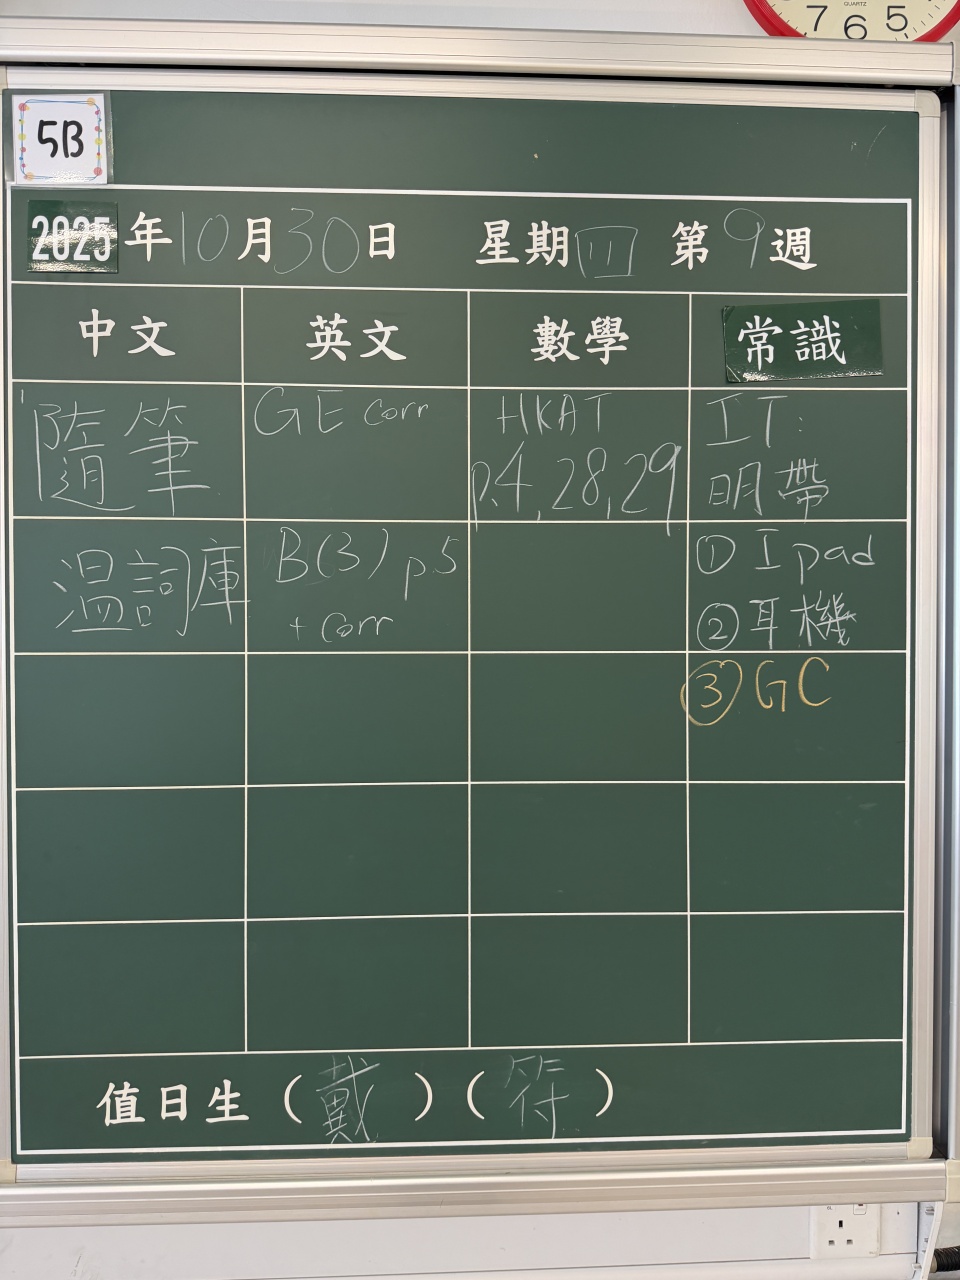 QUARTZ
7 6 5
5B
2025年10月30日 星期四 第9週
中文 英文 數學 常識
隨筆
GE corr
HKAT
p.4,28,29
IT:
明帶
温詞庫
B(3) p.5
+ corr
① Ipad
② 耳機
③ GC
值日生(戴)(符)